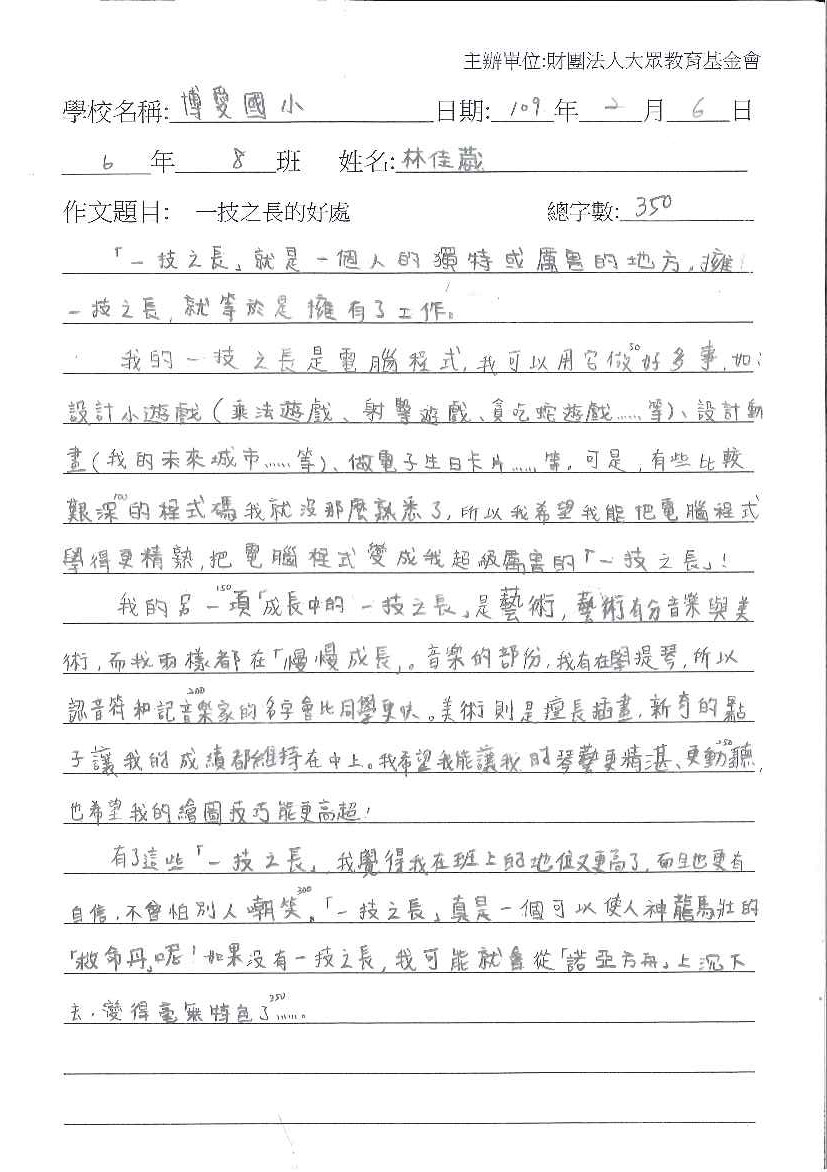 主辦單位:財團法人大眾教育基金會
學校名稱: 博愛國小 日期: 109 年 2 月 6 日
6 年 8 班 姓名: 林佳葳
作文題目: 一技之長的好處 總字數: 350
「一技之長」就是一個人的獨特或厲害的地方,擁
一技之長,就等於是擁有了工作。
我的一技之長是電腦程式,我可以用它做好多事,如:
50
設計小遊戲(乘法遊戲、射擊遊戲、貪吃蛇遊戲……等)、設計動
畫(我的未來城市……等)、做電子生日卡片……等。可是,有些比較
艱深的程式碼我就沒那麼熟悉了,所以我希望我能把電腦程式
100
學得更精熟,把電腦程式變成我超級厲害的「一技之長」!
我的另一項「成長中的一技之長」是藝術,藝術有分音樂與美
150
術,而我兩樣都在「慢慢成長」。音樂的部份,我有在學提琴,所以
認音符和記音樂家的名字會比同學更快。美術則是擅長插畫,新奇的點
200
子讓我的成績都維持在中上。我希望我能讓我的琴藝更精湛、更動聽,
250
也希望我的繪圖技巧能更高超!
有了這些「一技之長」,我覺得我在班上的地位又更高了,而且也更有
自信,不會怕別人嘲笑。「一技之長」真是一個可以使人神龍馬壯的
300
「救命丹」呢!如果沒有一技之長,我可能就會從「諾亞方舟」上沉下
去,變得毫無特色了……。
350